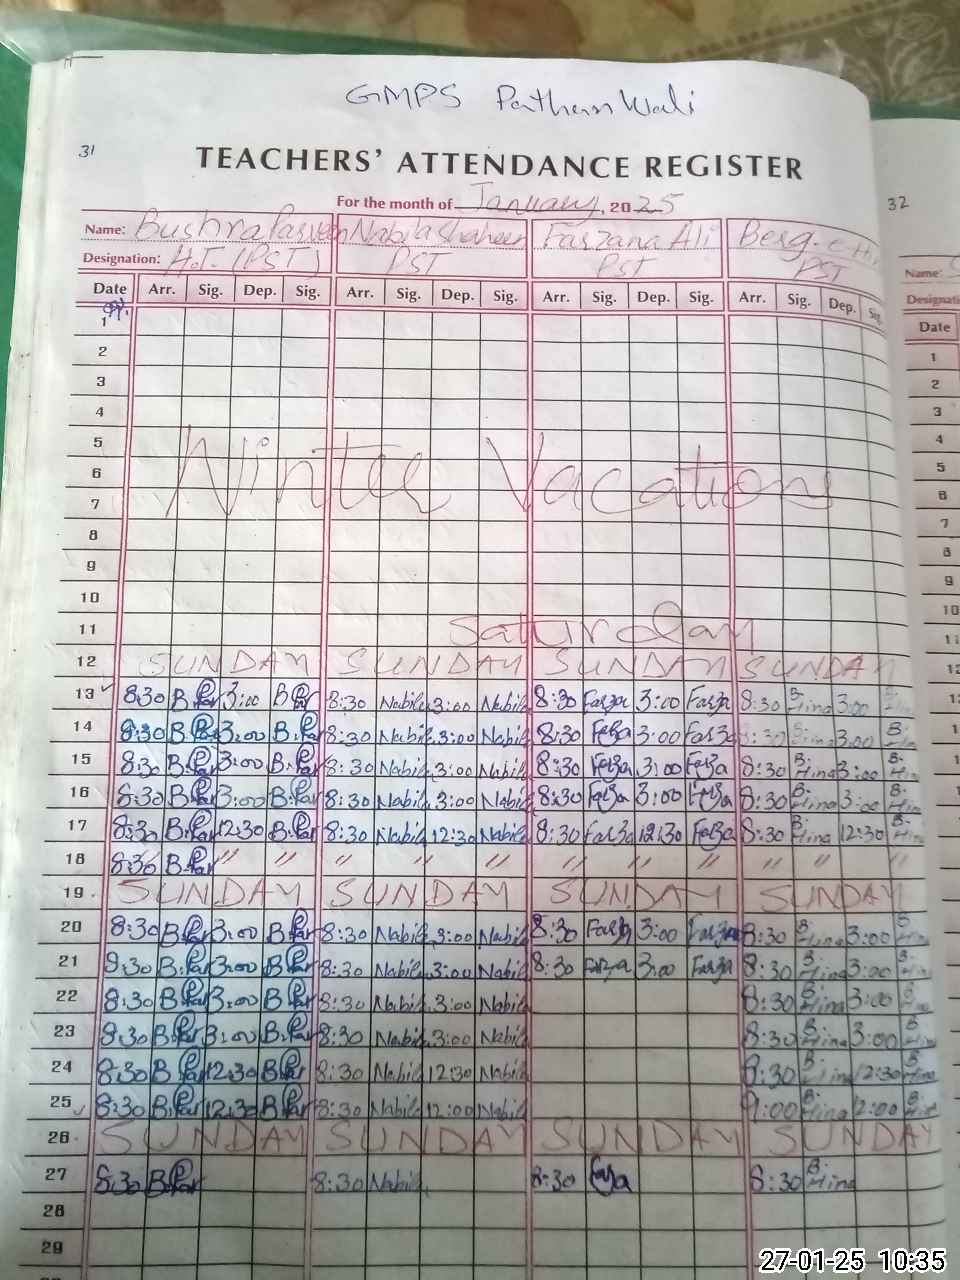 GMPS Pathan Wali
31
TEACHERS' ATTENDANCE REGISTER
For the month of January, 2025
32
Name: Bushra Parveen Nabila Shaheen Farzana Ali
Name:
Designation: H.T. (PST) PST PST PST
Date Arr. Sig. Dep. Sig. Arr. Sig. Dep. Sig. Arr. Sig. Dep. Sig. Arr. Sig. Dep. Sig.
Date
1 1
2 2
3 3
4 4
5 5
6 Winter Vacations 6
7 7
8 8
9 9
10 10
11 Saturday 11
12 SUNDAY SUNDAY SUNDAY SUNDAY 12
13 8:30 B.Par 3:00 B.Par 8:30 Nabila 3:00 Nabila 8:30 Farza 3:00 Farza 8:30 B. Hina 3:00
14 8:30 B.Par 3:00 B.Par 8:30 Nabila 3:00 Nabila 8:30 Farza 3:00 Farza 8:30 Hina 3:00 B. Hin
15 8:30 B.Par 3:00 B.Par 8:30 Nabila 3:00 Nabila 8:30 Farza 3:00 Farza 8:30 B. Hina 3:00 B. Hin
16 8:30 B.Par 3:00 B.Par 8:30 Nabila 3:00 Nabila 8:30 Farza 3:00 Farza 8:30 B. Hina 3:00 B. Hin
17 8:30 B.Par 12:30 B.Par 8:30 Nabila 12:30 Nabila 8:30 Farza 12:30 Farza 8:30 B. Hina 12:30 B. Hin
18 8:30 B.Par " " " " " " " " " " " "
19 SUNDAY SUNDAY SUNDAY SUNDAY
20 8:30 B.Par 3:00 B.Par 8:30 Nabila 3:00 Nabila 8:30 Farza 3:00 Farza 8:30 B. Hina 3:00 B. Hin
21 8:30 B.Par 3:00 B.Par 8:30 Nabila 3:00 Nabila 8:30 Farza 3:00 Farza 8:30 B. Hina 3:00 B. Hin
22 8:30 B.Par 3:00 B.Par 8:30 Nabila 3:00 Nabila 8:30 B. Hina 3:00 B. Hin
23 8:30 B.Par 3:00 B.Par 8:30 Nabila 3:00 Nabila 8:30 B. Hina 3:00 B. Hin
24 8:30 B.Par 12:30 B.Par 8:30 Nabila 12:30 Nabila 8:30 B. Hina 12:30 B. Hina
25 8:30 B.Par 12:30 B.Par 8:30 Nabila 12:00 Nabila 9:00 B. Hina 12:00 B. Hin
26 SUNDAY SUNDAY SUNDAY SUNDAY
27 8:30 B.Par 8:30 Nabila 8:30 Farza 8:30 B. Hina
28
29
27-01-25 10:35